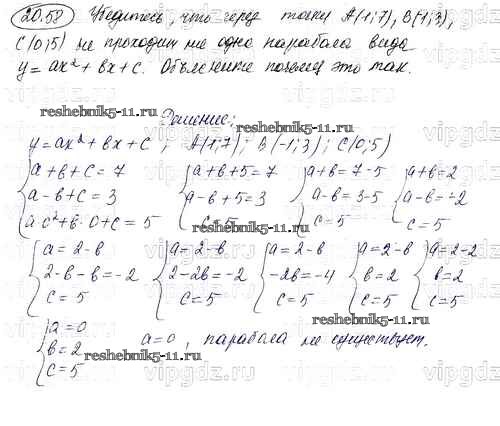 20.58 Убедитесь, что через точки A(1;7), B(1;3),
C(0;5) не проходит не одна парабола вида
y = ax² + bx + c. Объяснение почему это так.
reshebnik5-11.ru
Решение:
reshebnik5-11.ru
y = ax² + bx + c ; A(1;7); B(-1;3); C(0;5)
a+b+c=7 a+b+5=7 a+b=7-5 a+b=2
a-b+c=3 a-b+5=3 a-b=3-5 a-b=-2
a·c²+b·0+c=5 c=5 c=5 c=5
a=2-b a=2-b a=2-b a=2-b a=2-2
2-b-b=-2 2-2b=-2 -2b=-4 b=2 b=2
c=5 c=5 c=5 c=5 c=5
reshebnik5-11.ru
a=0
b=2 a=0, парабала не существует.
c=5
reshebnik5-11.ru
vipgdz.ru